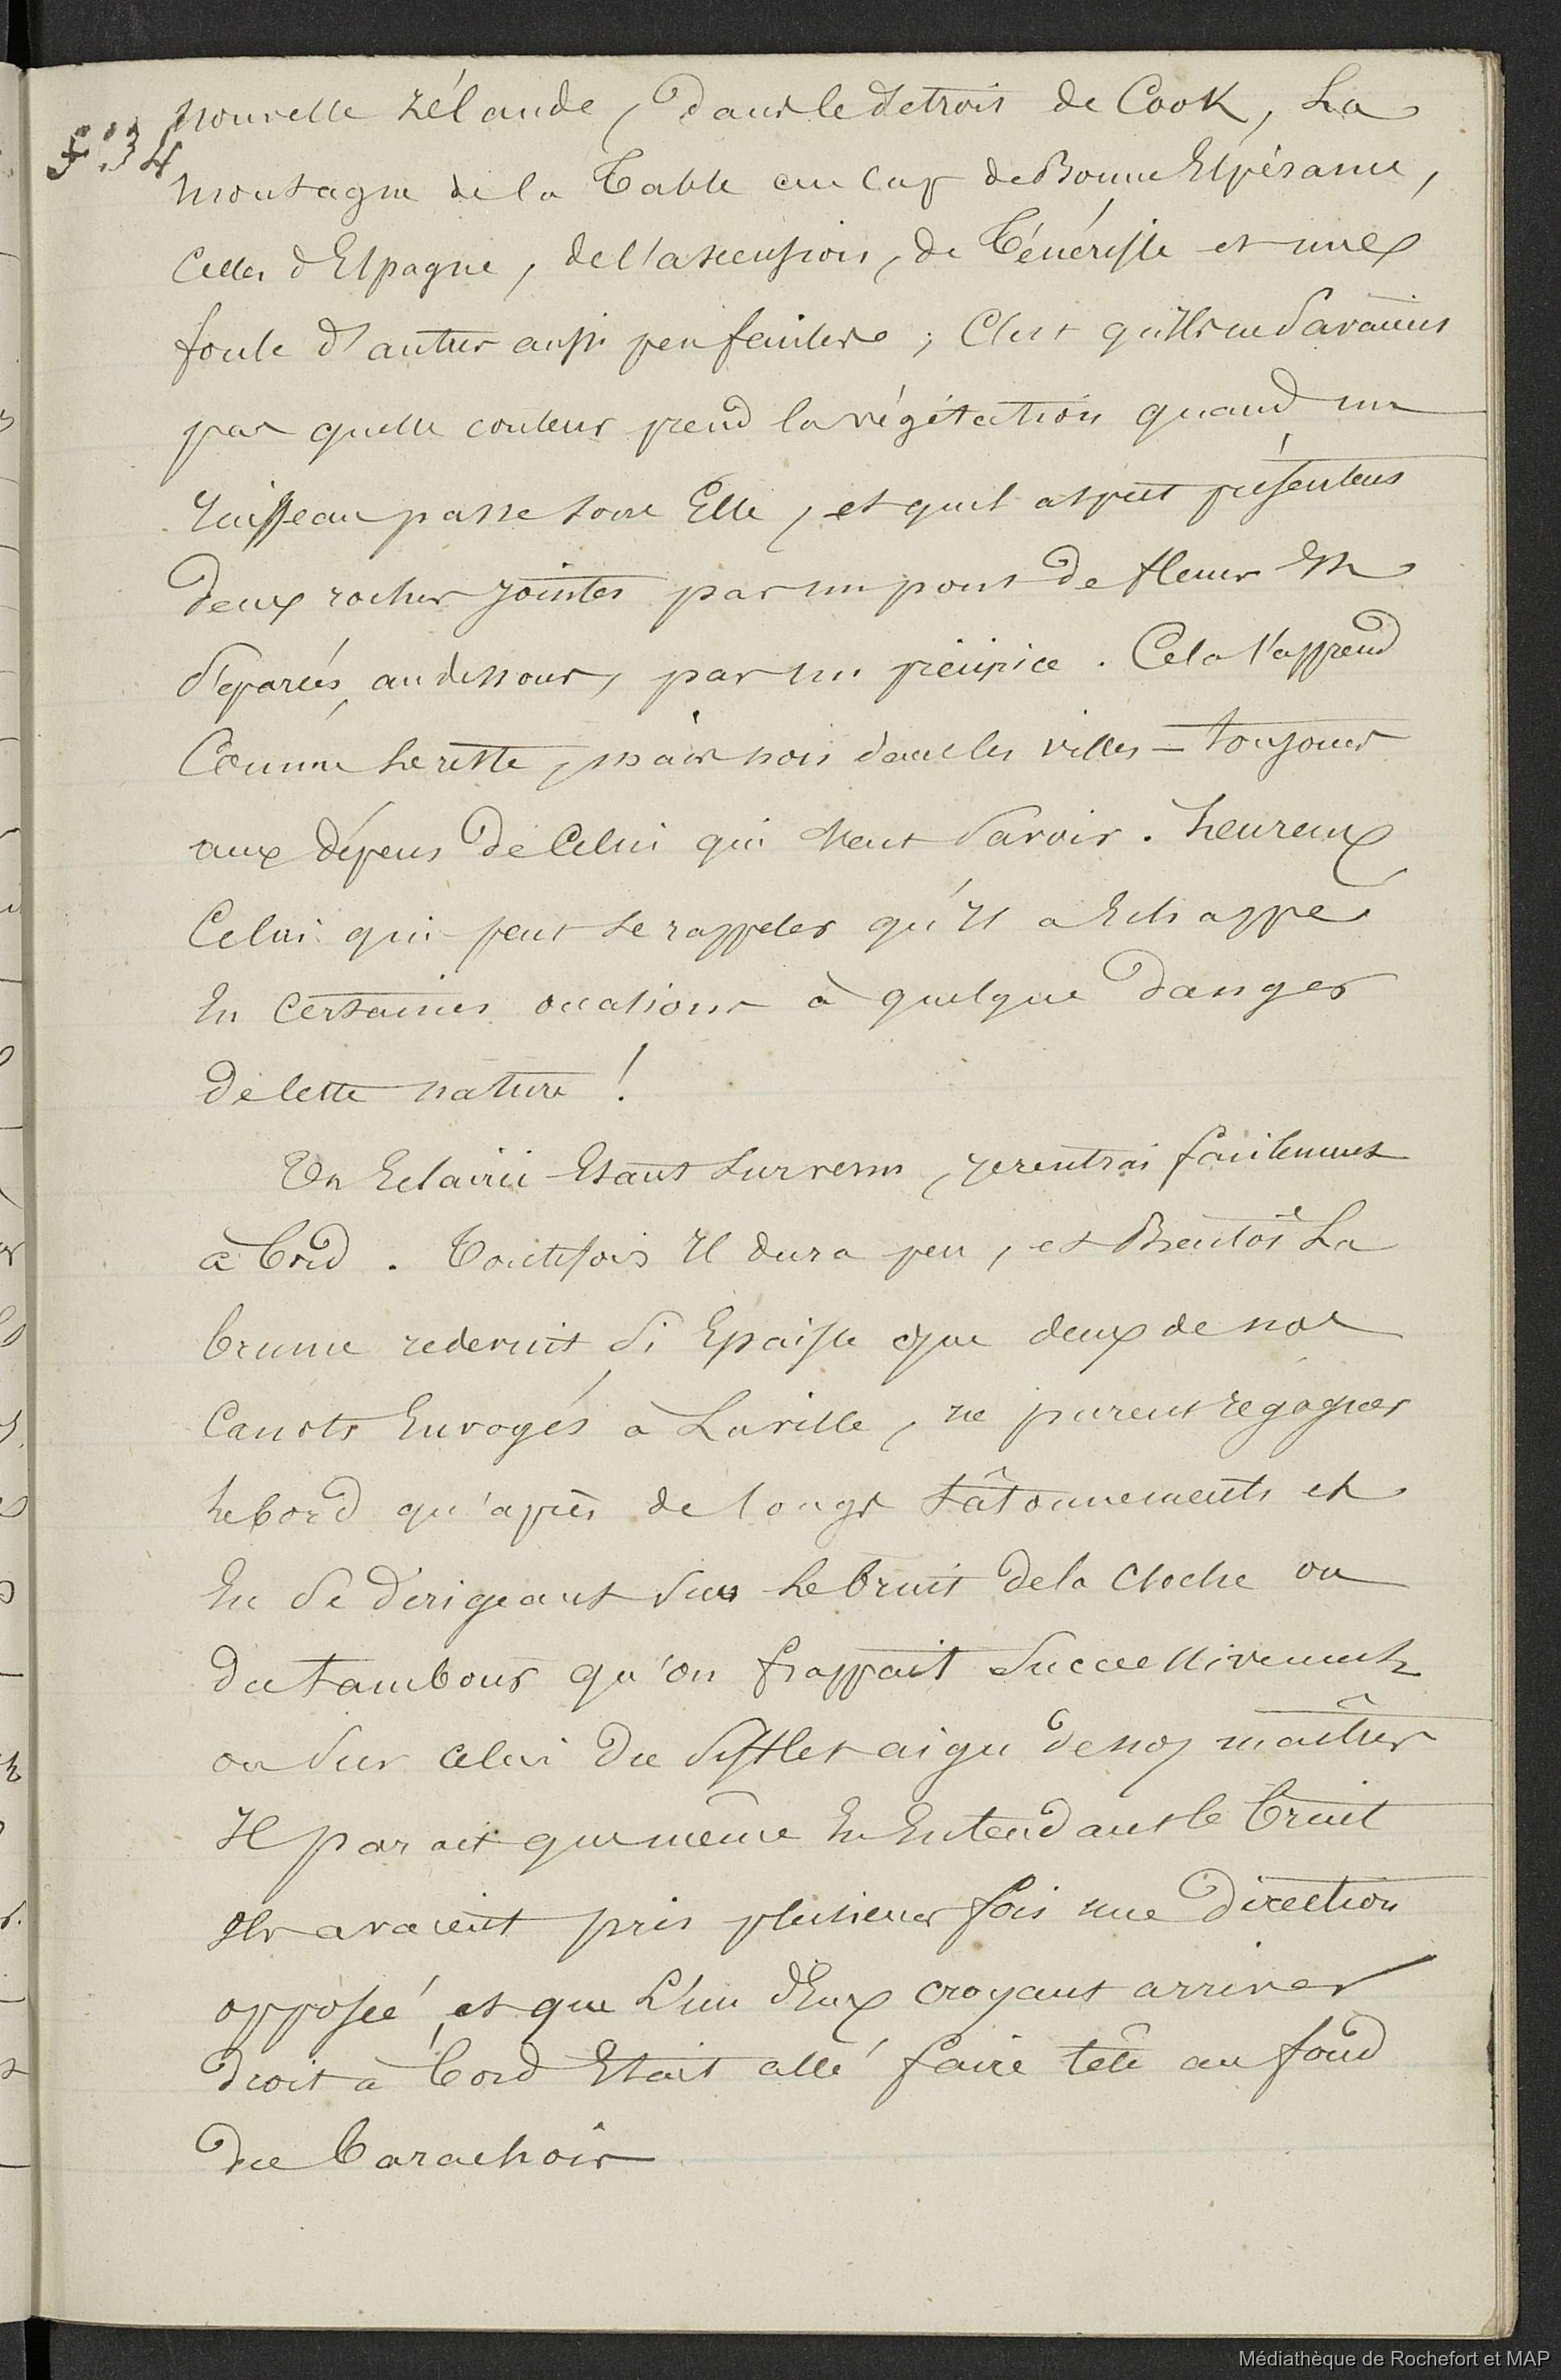 F° 34
nouvelle zélande, dans le detroit de Cook, La
montagne de la Table au Cap de Bonne Espérance,
Celles d'Espagne, de l'ascension, de Ténériffe et une
foule d'autres aussi peu ; C'est qu'ils ne Savaient
pas quelle couleur prend la végétation quand un
ruisseau passe sous Elle, et quel aspect présentent
deux rocher jointes par un pont de fleurs Et
Séparés, au dessous, par un précipice. Cela s'apprend
Comme Le reste, mais non dans les villes = toujours
aux dépens de Celui qui veut Savoir. heureux
Celui qui peut Se rappeler qu'Il a Echappé
En Certaines occasions à quelque danger
de cette nature !
Un Eclairci Etant Survenu, je rentrai facilement
à bord. Toutefois Il dura peu, et Bientôt La
brume redevint Si Epaisse que deux de nos
Canots Envoyés à La ville, ne purent regagner
Le bord qu'après de longs tâtonnements et
En Se dirigeant Sur Le bruit de la Cloche ou
du tambour qu'on frappait Successivement
ou Sur celui du Sifflet aigu de nos maîtres
Il parait que même En Entendant le bruit
Ils avaient pris plusieurs fois une direction
opposée et que L'un d'Eux croyant arriver
droit à bord Etait allé faire tête au fond
du barachois
Médiathèque de Rochefort et MAP